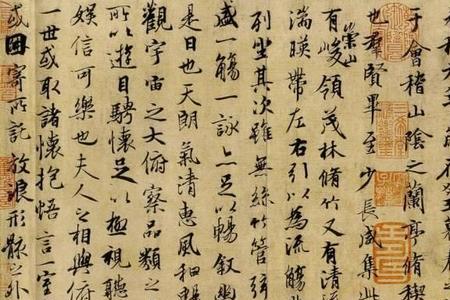 于會稽山陰之蘭亭脩稧
也羣賢畢至少長咸集
有崇山峻領茂林脩竹又有清
湍暎帶左右引以為流觴
列坐其次雖無絲竹管弦
盛一觴一詠亦足以暢敘幽
是日也天朗氣清惠風和暢
觀宇宙之大俯察品類之
所以遊目騁懷足以極視聽
娛信可樂也夫人之相與俯
一世或取諸懷抱悟言一室
或因寄所託放浪形骸之外